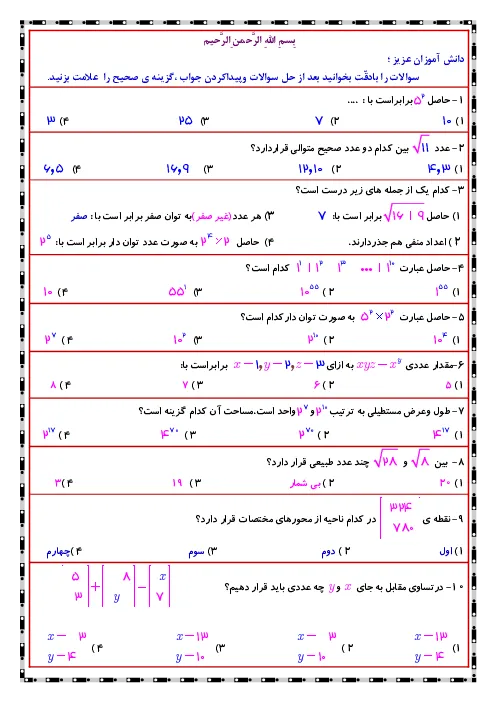 بِسمِ اللهِ الرَّحمنِ الرَّحیمِ
دانش آموزان عزیز ؛
سوالات را بادقّت بخوانید بعد از حل سوالات وپیداکردن جواب ،گزینه ی صحیح را علامت بزنید.
۱- حاصل ۵² برابراست با : ....
۱) ۱۰ ۲) ۷ ۳) ۲۵ ۴) ۳
۲- عدد √۱۱ بین کدام دو عدد صحیح متوالی قراردارد؟
۱) ۴,۳ ۲) ۱۲,۱۰ ۳) ۱۶,۹ ۴) ۶,۵
۳- کدام یک از جمله های زیر درست است؟
۱) حاصل √۱۶|۹ برابر است با: ۷ ۳) هر عدد(غیر صفر)به توان صفر برابر است با: صفر
۲) اعداد منفی هم جذردارند. ۴) حاصل ۲⁴×۲ به صورت عدد توان دار برابر است با: ۲⁵
۴- حاصل عبارت ۱¹ | ۱² ۱³ ... | ۱¹⁰ کدام است؟
۱) ۱⁵⁵ ۲) ۱۰⁵⁵ ۳) ۵۵¹ ۴) ۱۰
۵- حاصل عبارت ۵²×۲² به صورت توان دار کدام است؟
۱) ۱۰⁴ ۲) ۲¹⁰ ۳) ۱۰² ۴) ۲⁷
۶-مقدار عددی xyz−xʸ به ازای x−۱,y−۲,z−۳ برابراست با:
۱) ۵ ۲) ۶ ۳) ۷ ۴) ۸
۷- طول وعرض مستطیلی به ترتیب ۲¹⁰و۲⁷واحد است.مساحت آن کدام گزینه است؟
۱) ۴¹⁷ ۲) ۲⁷⁰ ۳) ۴⁷⁰ ۴) ۲¹⁷
۸- بین √۸ و √۲۸ چند عدد طبیعی قرار دارد؟
۱) ۲۰ ۲) بی شمار ۳) ۱۹ ۴)۳
۹- نقطه ی [۳۲۴ ۷۸۰] در کدام ناحیه از محورهای مختصات قرار دارد؟
۱) اول ۲) دوم ۳) سوم ۴)چهارم
۱۰- درتساوی مقابل به جای x و y چه عددی باید قرار دهیم؟ [۵ ۳]+[۸ y]−[x ۷]
۱) x−۱۳ y−۴ ۲) x− ۳ y−۱۰ ۳) x−۱۳ y−۱۰ ۴) x− ۳ y−۴